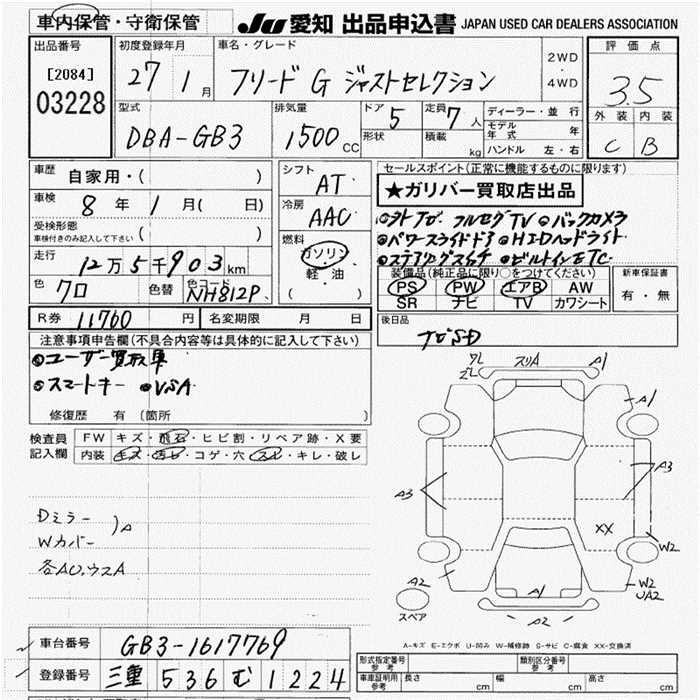 車内保管・守衛保管 JU 愛知 出品申込書 JAPAN USED CAR DEALERS ASSOCIATION
出品番号 初度登録年月 車名・グレード 評価点
[2084] 27 1月 フリード G ジャストセレクション 2WD・4WD 3.5
03228
型式 排気量 ドア 5 定員 7人 ディーラー・並行 外装 内装
DBA-GB3 1500cc 形状 積載 kg モデル年式 年 C B
ハンドル 左・右
車歴 自家用・( ) シフト AT セールスポイント(正常に機能するものに限ります)
★ガリバー買取店出品
車検 8年 1月( 日) 冷房 AAC
受検形態 車検付きのみ記入して下さい ( )
●フルセグTV ●バックカメラ
●パワースライドドア ●HIDヘッドライト
●ステアリングスイッチ ●ビルトインETC
走行 12万5千903km 燃料 ガソリン 軽・油 ( )
装備品(純正品に限り○をつけてください) 新車保証書
色 クロ 色替 色コード NH812P PS PW エアB AW 有・無
SR ナビ TV カワシート
R券 11760円 名変期限 月 日 後日品
ナビSD
注意事項申告欄(不具合内容等は具体的に記入して下さい)
●ユーザー買取車
●スマートキー ●VSA
修復歴 有 (箇所 )
検査員記入欄 FW キズ・飛石・ヒビ割・リペア跡・X要
内装 キズ・汚レ・コゲ・穴・スレ・キレ・破レ
Dミラー )A
Wカバー
各AU,ウスA
ワレ スリA A1
ズレ
A1
A3 A3
XX
W2
A2 A1 W2
UA2
スペア A2
A-キズ E-エクボ U-凹み W-補修跡 S-サビ C-腐食 XX-交換済
車台番号 GB3-1617769
登録番号 三重 536 む 1224
形式指定番号 参考 類別区分番号 参考
車庫証明用 参考 長さ cm 幅 cm 高さ cm